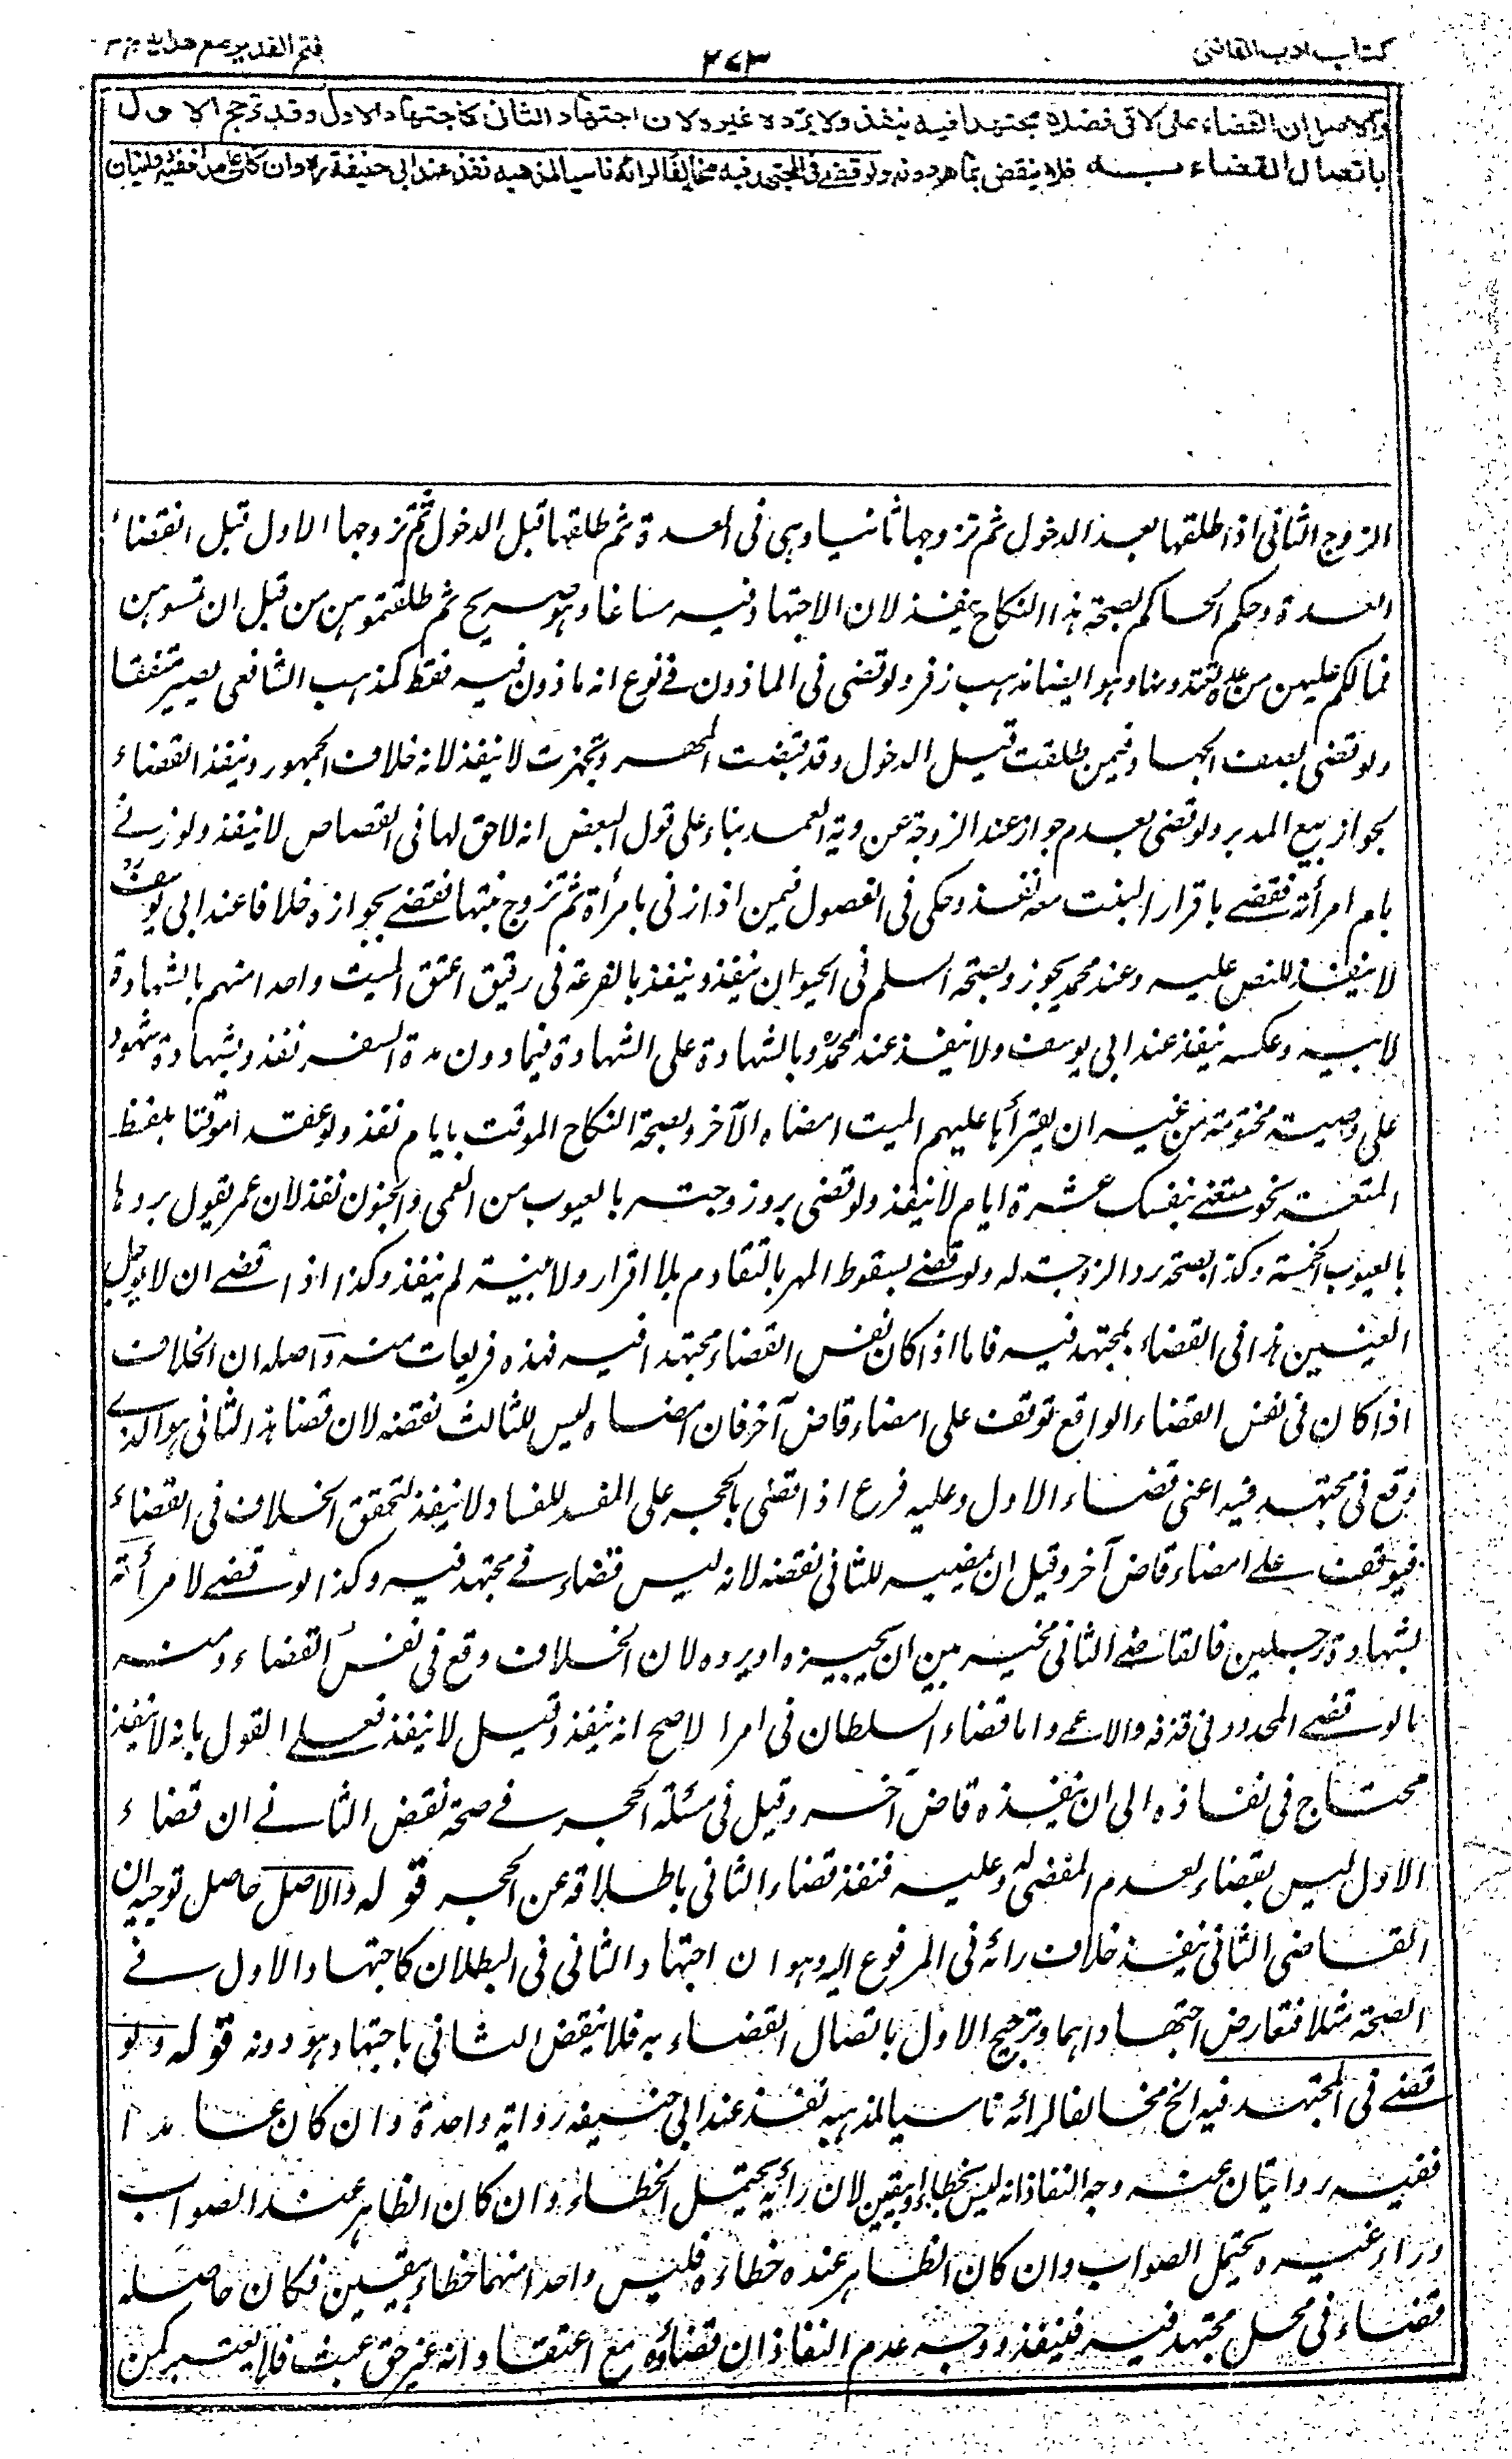 كتاب ادب القاضى
٢٤٣
فتح القدير مع هدايه ج ٣
والاصل ان القضاء متى لاقى فصلا مجتهدا فيه ينفذ ولا يرده غيره لان اجتهاد الثانى كاجتهاد الاول وقد ترجح الاول
باتصال القضاء به فلا ينقض بما هو دونه ولو قضى فى المجتهد فيه مخالفا لرائه ناسيا لمذهبه نفذ عند ابى حنيفة ره وان كان عامدا ففيه روايتان
الزوج الثانى اذا طلقها بعد الدخول ثم تزوجها ثانيا وهى فى العدة ثم طلقها قبل الدخول ثم تزوجها الاول قبل انقضاء
العدة وحكم الحاكم بصحة هذا النكاح ينفذ لان الاجتهاد فيه مساغا وهو صريح ثم طلقتموهن من قبل ان تمسوهن
فما لكم عليهن من عدة تعتدونها وهو ايضا مذهب زفر ولو قضى فى الماذون فى نوع انه ماذون فيه فقط كمذهب الشافعى يصير متفقا
ولو قضى بنصف الجهاز فيمن طلقت قبل الدخول وقد قبضت المهر وتجهزت لا ينفذ لانه خلاف الجمهور وينفذ القضاء
بجواز بيع المدبر ولو قضى بعدم جواز عند الزوجة عن دية العمد بناء على قول البعض انه لا حق لها فى القصاص لا ينفذ ولو زنى
بام امرأته فقضى باقرار البنت معه نفذ وحكى فى الفصول فيمن اذا زنى بامرأة ثم تزوج بنتها فقضى بجوازه خلافا عند ابى يوسف
لا ينفذ للنص عليه وعند محمد يجوز وبصحة السلم فى الحيوان ينفذ وينفذ بالقرعة فى رقيق اعتق الميت واحدا منهم بالشهادة
لابنه وعكسه ينفذ عند ابى يوسف ولا ينفذ عند محمد وبالشهادة على الشهادة فيما دون مدة السفر نفذ وبشهادة شهود
على وصية مختومة من غير ان يقرأها عليهم الميت امضاه الآخر وبصحة النكاح الموقت بايام نفذ ولو عقد موقتا بلفظ
المتعة نحو متعينى بنفسك عشرة ايام لا ينفذ ولو قضى برد زوجته بالعيوب من العمى والجنون نفذ لان عمر يقول بردها
بالعيوب الخمسة وكذا بصحة رد الزوجة له ولو قضى بسقوط المهر بالتقادم بلا اقرار ولا بينة لم ينفذ وكذا اذا قضى ان لا يؤجل
العنين هذا فى القضاء بمجتهد فيه فاما اذا كان نفس القضاء مجتهدا فيه فهذه فريعات منه واصله ان الخلاف
اذا كان فى نفس القضاء الواقع توقف على امضاء قاض آخر فان امضاه ليس للثالث نقضه لان قضا هذا الثانى هو الذى
وقع فى مجتهد فيه اعنى قضاء الاول وعليه فرع اذا قضى بالحجر على المفسد للفساد لا ينفذ لتحقق الخلاف فى القضاء
فيوقف على امضاء قاض آخر وقيل ان يمضيه للثانى نقضه لانه ليس قضاء فى مجتهد فيه وكذا لو قضى لامرأته
بشهادة رجلين فالقاضى الثانى مخير بين ان يجيزه او يرده لان الخلاف وقع فى نفس القضاء ومنه
ما لو قضى المحدود فى قذفه والاعمى واما قضاء السلطان فى امر الاصح انه ينفذ وقيل لا ينفذ فعلى القول بانه لا ينفذ
محتاج فى نفاذه الى ان ينفذه قاض آخر وقيل فى مسئلة الحجر فى صحة نقض الثانى ان قضاء
الاول ليس بقضاء لعدم المقضى له وعليه فنفذ قضاء الثانى باطلاقه عن الحجر قوله والاصل حاصل توجيه ان
القاضى الثانى ينفذ خلاف رائه فى المرفوع اليه وهو ان اجتهاد الثانى فى البطلان كاجتهاد الاول فى
الصحة مثلا فتعارض اجتهاداهما وترجح الاول باتصال القضاء به فلا ينقض الثانى باجتهاد هو دونه قوله ولو
قضى فى المجتهد فيه الخ مخالفا لرائه ناسيا لمذهبه نفذ عند ابى حنيفه رواية واحدة وان كان عامدا
ففيه روايتان عنه وجه النفاذ انه ليس بخطاء بيقين لان رأيه يحتمل الخطاء وان كان الظاهر عنده الصواب
وراء غيره يحتمل الصواب وان كان الظاهر عنده خطاءه فليس واحدا منهما خطاء بيقين فكان حاصله
قضاء فى محل مجتهد فيه فينفذ ووجه عدم النفاذ ان قضاءه مع اعتقاد انه غير حق عبث فلا يعتبر كمن